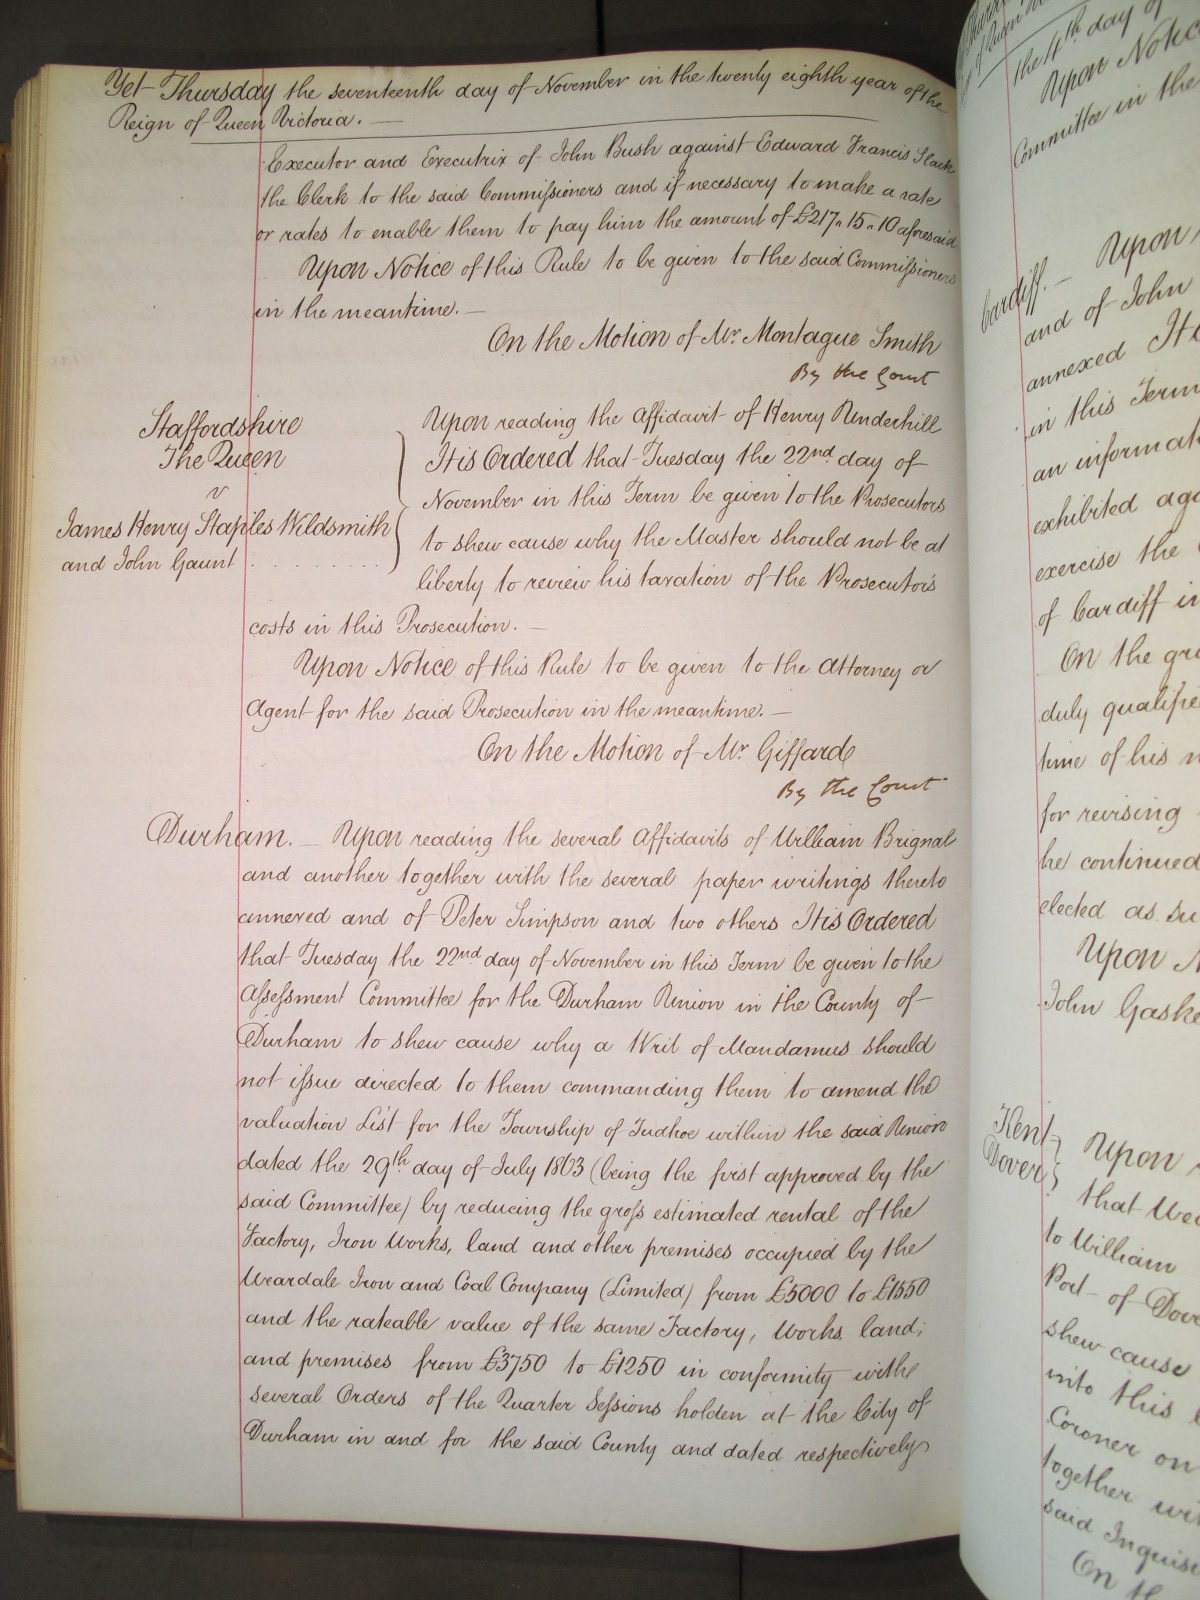 Yet Thursday the seventeenth day of November in the twenty eighth year of the
Reign of Queen Victoria. —
Executor and Executrix of John Bush against Edward Francis Slack
the Clerk to the said Commissioners and if necessary to make a rate
or rates to enable them to pay him the amount of £217,, 15,, 10 aforesaid
Upon Notice of this Rule to be given to the said Commissioners
in the meantime. —
On the Motion of Mr. Montague Smith
By the Court
Staffordshire
The Queen
v
James Henry Staples Wildsmith
and John Gaunt . . . . . . .
Upon reading the Affidavit of Henry Underhill
It is Ordered that Tuesday the 22nd. day of
November in this Term be given to the Prosecutors
to shew cause why the Master should not be at
liberty to review his taxation of the Prosecutor's
costs in this Prosecution. —
Upon Notice of this Rule to be given to the Attorney or
Agent for the said Prosecution in the meantime. —
On the Motion of Mr. Giffard
By the Court
Durham. — Upon reading the several Affidavits of William Brignal
and another together with the several paper writings thereto
annexed and of Peter Simpson and two others It is Ordered
that Tuesday the 22nd day of November in this Term be given to the
Assessment Committee for the Durham Union in the County of
Durham to shew cause why a Writ of Mandamus should
not issue directed to them commanding them to amend the
valuation List for the Township of Tudhoe within the said Union
dated the 29th day of July 1863 (being the first approved by the
said Committee) by reducing the gross estimated rental of the
Factory, Iron Works, land and other premises occupied by the
Weardale Iron and Coal Company (Limited) from £5000 to £1550
and the rateable value of the same Factory, Works, land,
and premises from £3750 to £1250 in conformity with
several Orders of the Quarter Sessions holden at the City of
Durham in and for the said County and dated respectively
the 4th day of
Upon Notice
Committee in the
Cardiff. — Upon
and of John
annexed It
in this Term
an informat
exhibited aga
exercise the
of Cardiff in
On the gro
duly qualifie
time of his
for revising
he continued
elected as su
Upon N
John Gaske
Kent
Dover
Upon
that Wed
to William
Port of Dove
shew cause
into this
Coroner on
together wit
said Inquisi
On th